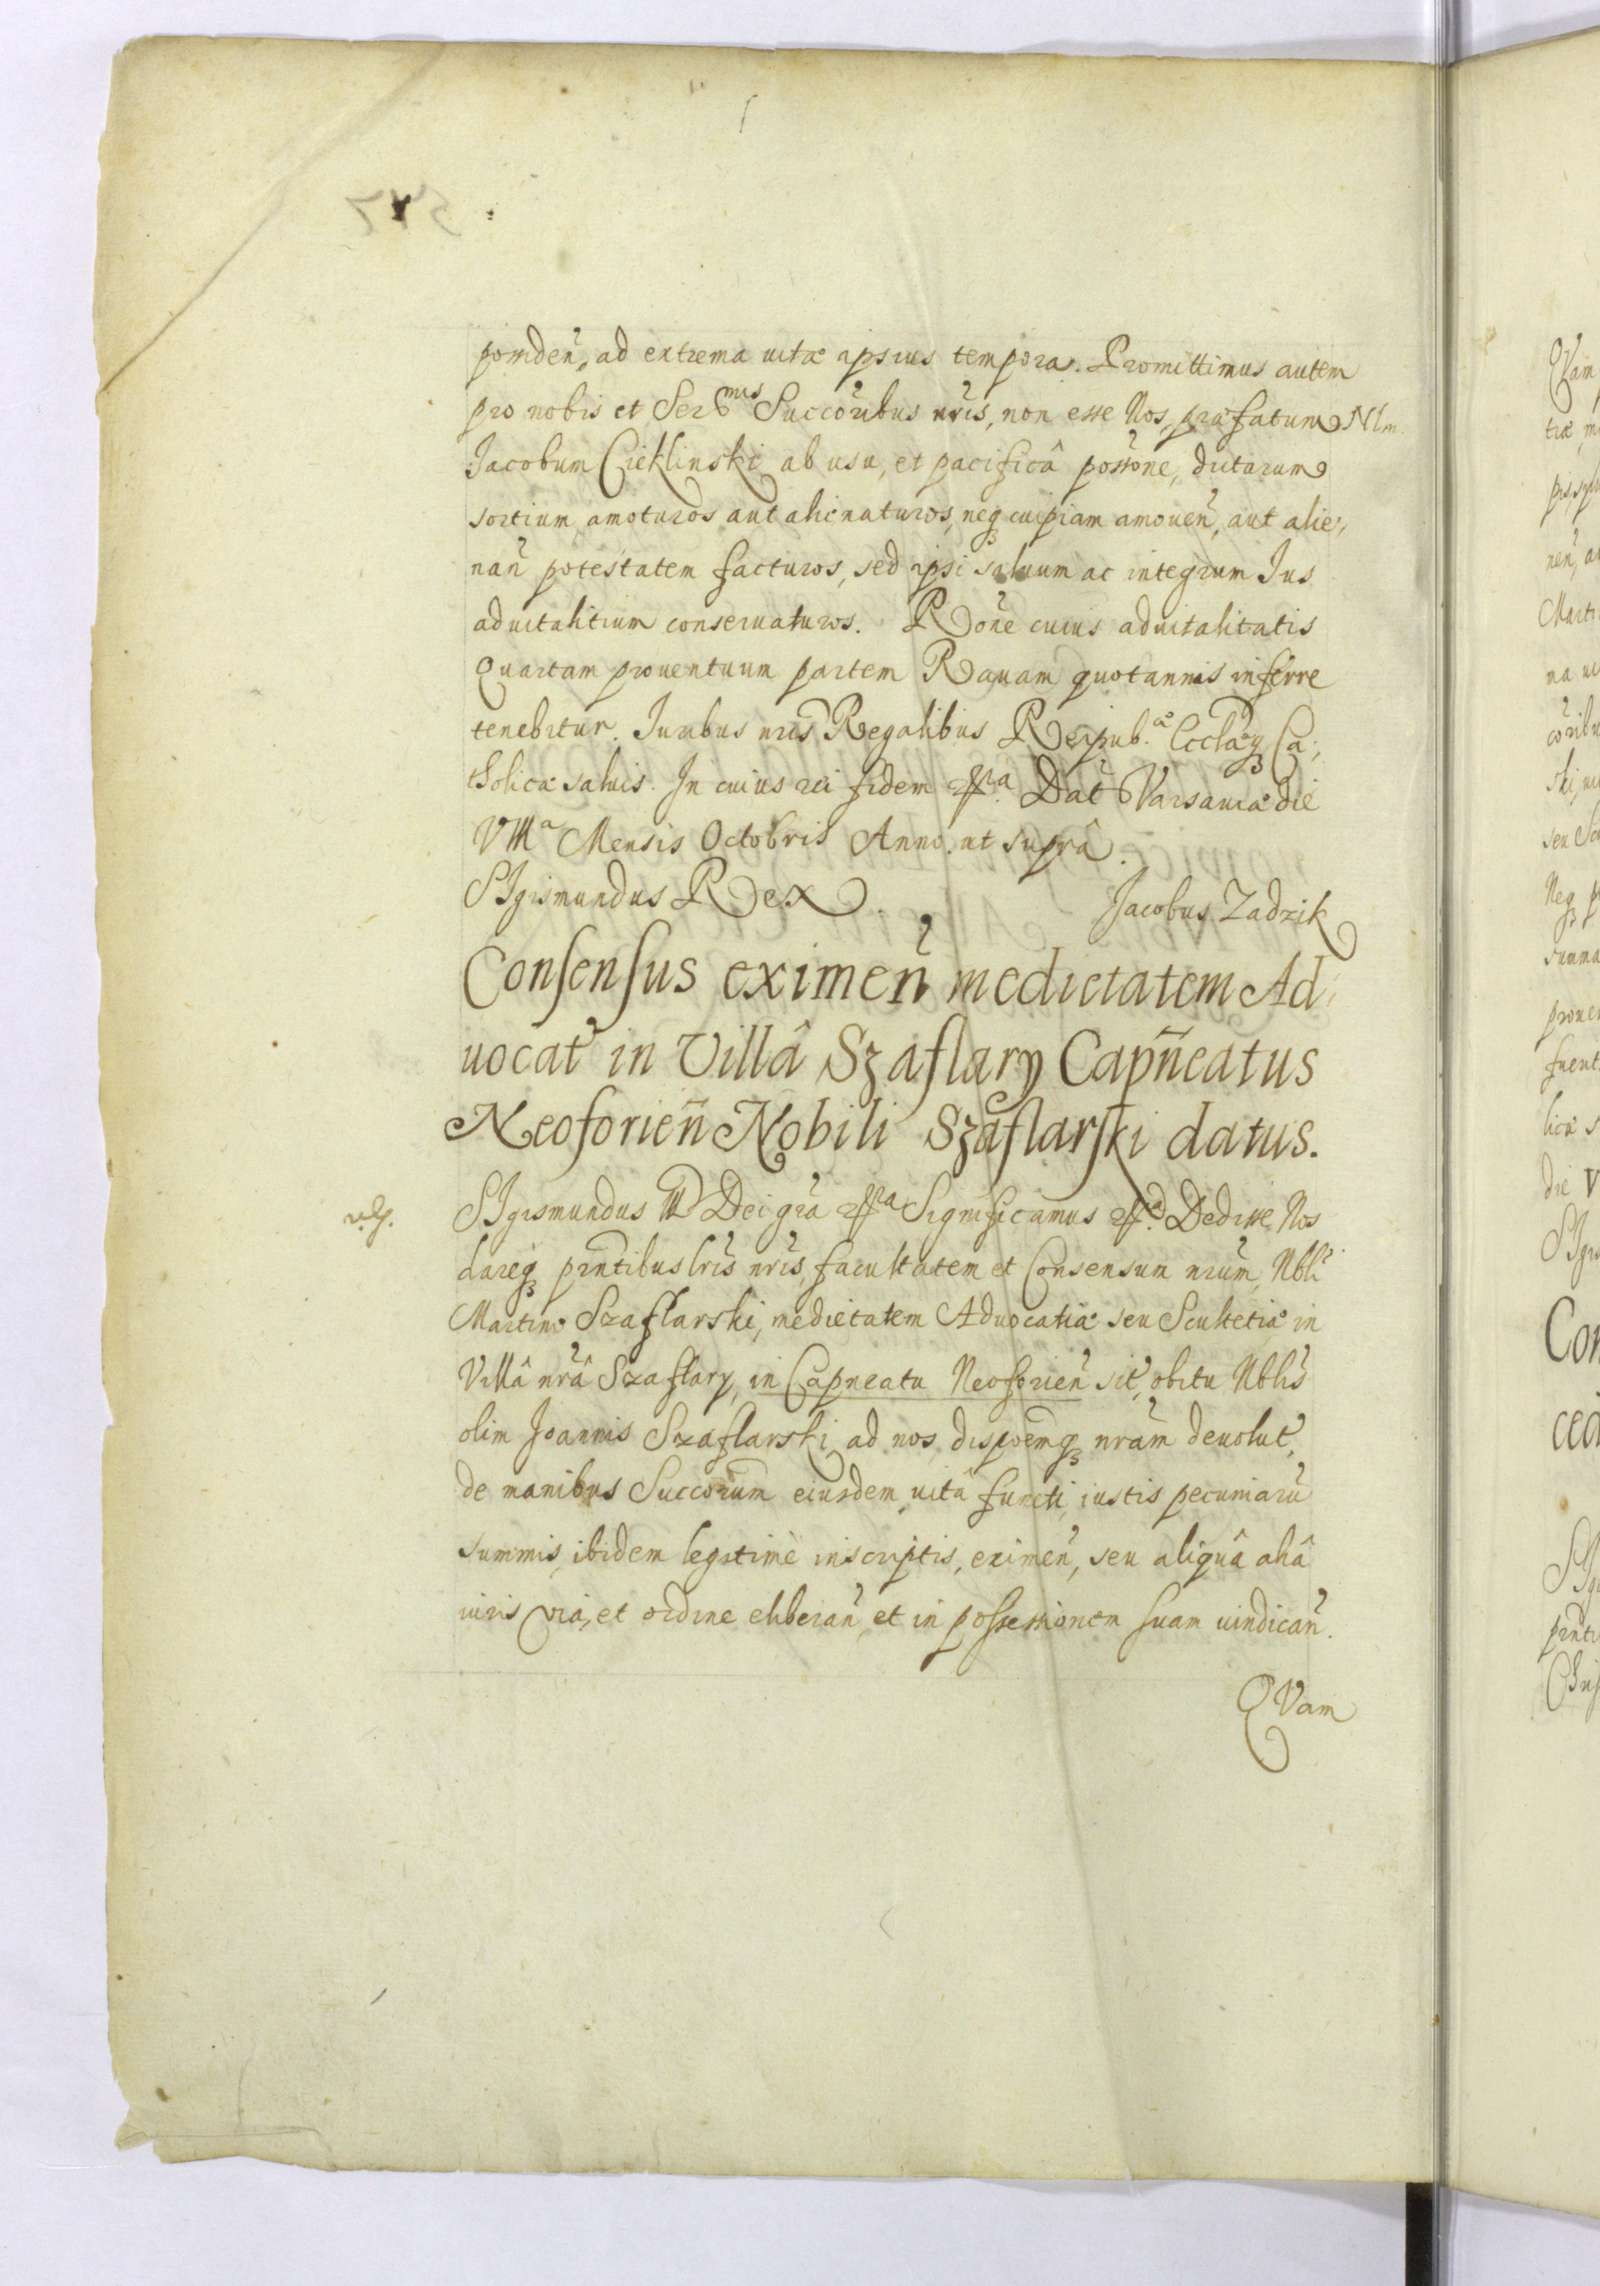 possiden̄, ad extrema uitæ ipsius tempora. Promittimus autem
pro nobis et Ser^mis Succoribus nris, non esse Nos, præfatum Nlm.
Jacobum Cieklinski ab usu, et pacificâ possone, dictarum
sortium amoturos aut alienaturos, neq cuipiam amouen̄, aut alie,
nan̄ potestatem facturos, sed ipsi saluum ac integrum Jus
aduitalitium conseruaturos. Rone cuius aduitalitatis
Quartam prouentuum partem Rauam quotannis inferre
tenebitur. Juribus nris Regalibus Reipub.æ Ecclæq Ca,
tholicæ saluis. In cuius rei fidem etc.a Dat Varsauiæ die
VIII^a Mensis Octobris Anno. ut suprâ.
SIgismundus Rex.
Jacobus Zadzik
Consensus eximen̄ medietatem Ad,
uocat in Villâ Szaflary Capn̄eatus
Neoforien̄ Nobili Szaflarski datus.
SIgismundus III Dei gra etc.a Significamus etc.a Dedisse Nos
dareq pntibus lris nris, facultatem et Consensum nrum, Nbli
Martino Szaflarski, medietatem Aduocatiæ seu Scultetiæ in
Villâ nrâ Szaflary, in Capneatu Neoforien̄ sit, obitu Nblis
olim Joannis Szaflarski ad nos dispoemq nram deuolut,
de manibus Succorum eiusdem uitâ functi, iustis pecuniarū
summis, ibidem legitimè inscriptis, eximen̄, seu aliquâ aliâ
iuris viâ, et ordine eliberan̄ et in possessionem suam uindican̄.
QVam